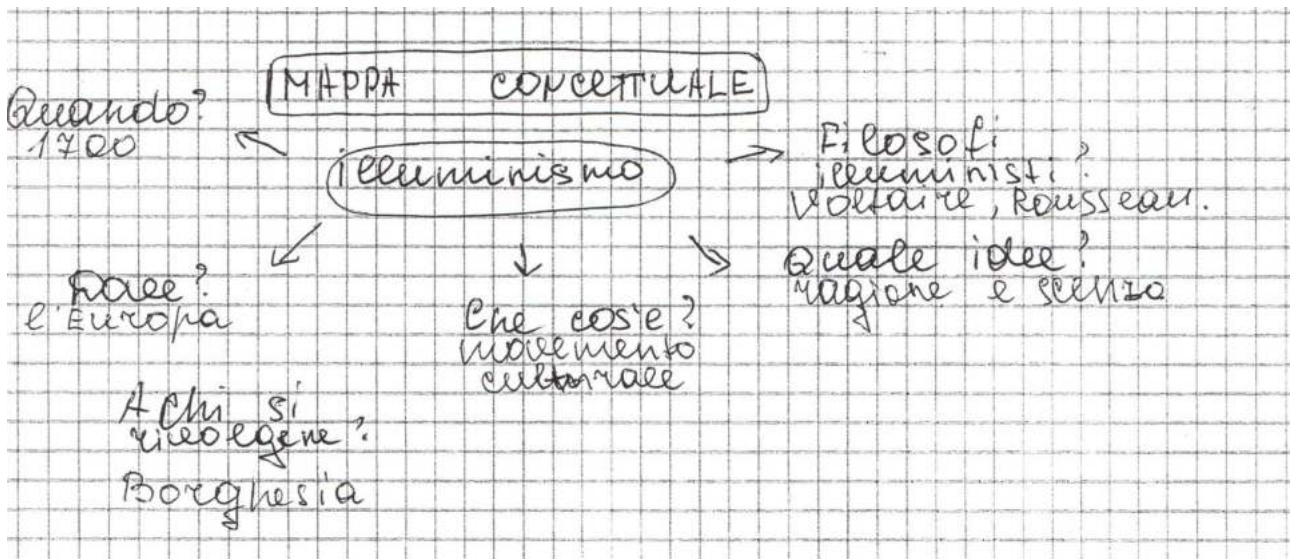 MAPPA CONCETTUALE
Quando?
1700
illuminismo
Filosofi
illuministi?
Voltaire, Rousseau.
Dove?
l'Europa
Che cos'e?
movemento
culturale
Quale idee?
ragione e scenza
A chi si
rivolgene?
Borghesia